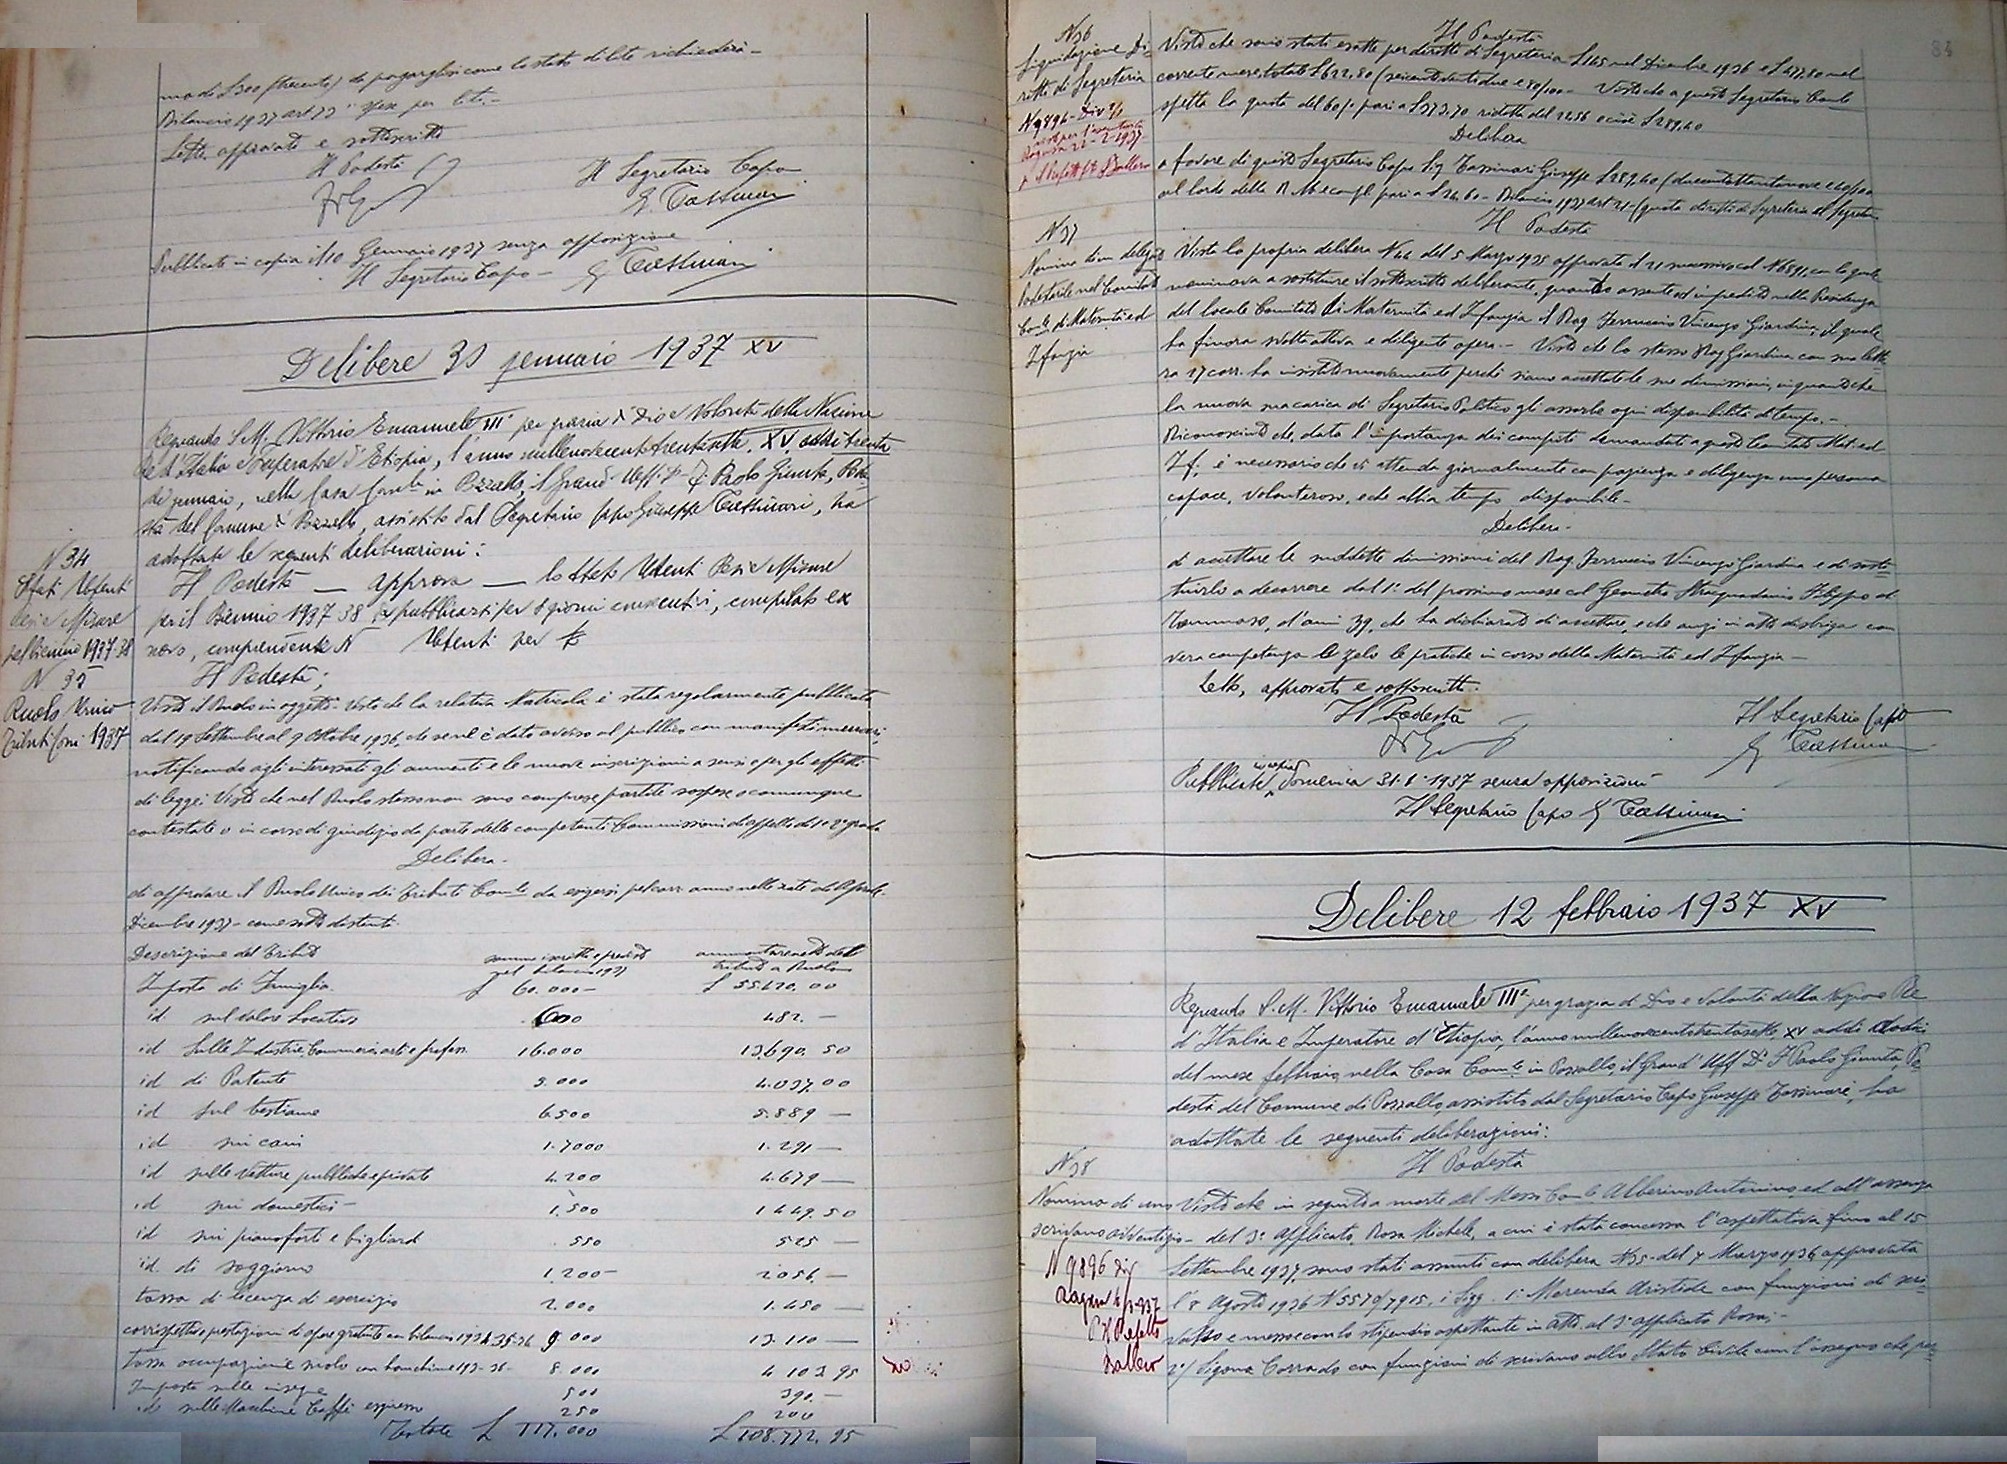 ma di £300 (trecento) da pagarglisi come lo stato di lite richiederà -
Bilancio 1937 art 73 " Spese per liti. -
Letto approvato e sottoscritto
Il Podestà
Il Segretario Capo
G. Tassinari
Pubblicato in copia il 10 Gennaio 1937 senza opposizione
Il Segretario Capo - G Tassinari
Delibere 30 gennaio 1937 XV
Regnando S. M. Vittorio Emanuele III° per grazia di Dio e Volontà della Nazione
Re d'Italia e Imperatore d'Etiopia, l'anno millenovecentotrentasette, XV, addì trenta
di gennaio, nella Casa Com.le in Pozzallo, il Grand. Uff. Paolo Giunta, Pode
stà del Comune di Pozzallo, assistito dal Segretario Capo Giuseppe Tassinari, ha
adottate le seguenti deliberazioni:
N 34
Stati Utenti
Pesi e Misure
pel biennio 1937-38
Il Podestà — approva — lo Stato Utenti Pesi e Misure
per il Biennio 1937-38 pubblicatosi per 8 giorni consecutivi, compilato ex
novo, comprendente N Utenti per £
N 35
Ruolo Unico
Tributi Com. 1937
Il Podestà;
Visto il Ruolo in oggetto. Visto che la relativa Matricola è stata regolarmente pubblicata
dal 19 Settembre al 9 Ottobre 1936, che se ne è dato avviso al pubblico con manifesti murari,
notificando agli interessati gli aumenti e le nuove inscrizioni a sensi e per gli effetti
di legge. Visto che nel Ruolo stesso non sono comprese partite sospese o comunque
contestate o in corso di giudizio da parte delle competenti Commissioni di appello di 1° e 2° grado
Delibera -
di approvare il Ruolo Unico dei Tributi Com.li da esigersi pel corr. anno nelle rate da Aprile -
Dicembre 1937 - come sotto distinti.
Descrizione del Tributo somme iscritte e previste nel bilancio 1937 ammontare netto del tributo a Ruolo
Imposta di Famiglia £ 60.000 - £ 55.620.00
id. sul valore Locativo 600 482. -
id Sulle Industrie, Commerci, arti e profess. 16.000 13.690.50
id di Patente 5.000 4.037,00
id sul bestiame 6.500 5.889 -
id sui cani 1.7000 1.291 -
id sulle vetture pubbliche e private 4.200 4.679 -
id sui domestici - 1.500 1449.50
id sui pianoforti e bigliardi 550 525 -
id. di soggiorno 1.200 - 2056 -
tassa di licenza di esercizio 2.000 1.450 -
corrispettivo prestazioni di opere gratuite con bilancio 1934-35-36 9.000 13.110 -
tassa occupazione suolo con banchine 1935-36 - 8.000 4 103,95
Imposta sulle insegne 500 390. -
id. sulle Macchine Caffè espresso 250 200
Totale £ 117.000 £ 108.772,95
84
N 36
Liquidazione Di-
ritti di Segreteria
N 9896 - Div 2/1
Visto per l'esecutorietà
Ragusa 22-2-1937
Il Podestà
Visto che sono stati esatte per diritti di Segreteria £ 145 nel Dicembre 1936 e £ 477,80 nel
corrente mese, totale £ 622,80 (seicentoventidue e 80/100 - Visto che a questo Segretario Com.le
spetta la quota del 60% pari a £ 373,70 ridotta del 22,56 e cioè £ 289,40
Delibera
a favore di questo Segretario Capo Sig Tassinari Giuseppe £ 289,40 (duecentottantanove e 40/100
al lordo della R. M. e compl. pari a £ 26,60 - Bilancio 1937 art 21 - (quota diritti di Segreteria al Segretario
N 37
Nomina di un delegato
Podestarile nel Comitato
Com.le di Maternità ed
Infanzia
Il Podestà
Vista la propria delibera N 44 del 5 Marzo 1935 approvata il 21 successivo col N 6891, con la quale
nominava a sostituire il sottoscritto deliberante, quando assente od impedito nella Presidenza
del locale Comitato di Maternità ed Infanzia il Rag Ferruccio Vincenzo Giardina, il quale
ha finora svolto attiva e diligente opera - Visto che lo stesso Rag Giardina con sua lette
ra 27 corr. ha insistito nuovamente perchè siano accettate le sue dimissioni, in quanto che
la nuova sua carica di Segretario Politico gli assorbe ogni disponibilità di tempo. -
Riconosciuto che, data l'importanza dei compiti demandati a questo Comitato Mat. ed
Inf. è necessario che vi attenda giornalmente con pazienza e diligenza una persona
capace, volenterosa, e che abbia tempo disponibile -
Delibera -
di accettare le suddette dimissioni del Rag. Ferruccio Vincenzo Giardina e di sosti
tuirlo a decorrere dal 1° del prossimo mese col Geometra Stracquadanio Filippo di
Tommaso, d'anni 39, che ha dichiarato di accettare, e che anzi in atto disbriga con
vera competenza e zelo le pratiche in corso della Maternità ed Infanzia -
Letto, approvato e sottoscritto.
Il Podestà
Il Segretario Capo
G Tassinari
Pubblicate in copia, domenica 31-1-1937 senza opposizioni
Il Segretario Capo G Tassinari
Delibere 12 febbraio 1937 XV
Regnando S. M. Vittorio Emanuele III° per grazia di Dio e Volontà della Nazione Re
d'Italia e Imperatore d'Etiopia, l'anno millenovecentotrentasette, XV addì dodici
del mese febbraio, nella Casa Com.le in Pozzallo, il Grand'Uff Paolo Giunta, Po
destà del Comune di Pozzallo, assistito dal Segretario Capo Giuseppe Tassinari, ha
adottate le seguenti deliberazioni:
N 38
Nomina di uno
scrivano avventizio -
N 9896 Div
Ragusa
Il Prefetto
Il Podestà
Visto che in seguito a morte del Messo Com.le Alberino Antonino ed all'assenza
del 3° Applicato, Rosa Michele, a cui è stata concessa l'aspettativa fino al 15
Settembre 1937, sono stati assunti con delibera N 35 - del 7 Marzo 1936 approvata
l'8 Agosto 1936 N 5570/7915, i Sigg. 1° Merenda Aristide con funzioni di scri-
vano e messo con lo stipendio aspettante in atto al 3° applicato Rosa; -
2°/ Sigona Corrado con funzioni di scrivano allo Stato Civile con l'assegno che per=